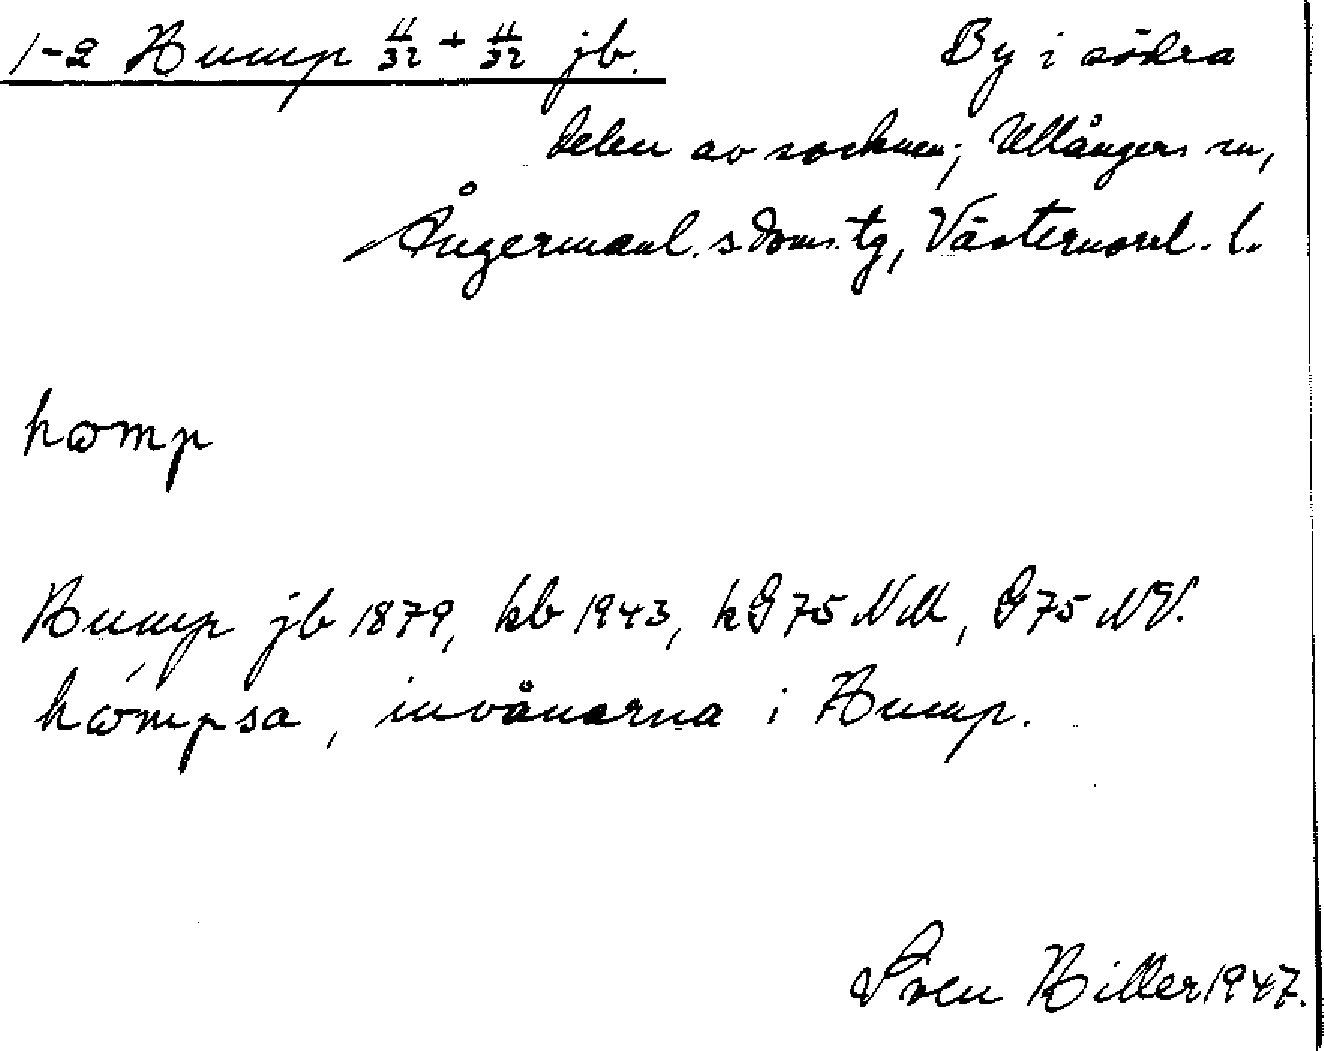 1-2 Hump 11/32 + 11/32 jb. By i södra
delen av socknen; Ullångers sn,
Ångermanl. s. doms. tg, Västernorrl. l.
hɷmp
Hump jb 1879, kb 1943, kG 75 NM, G 75 NV.
hɷ́mpsa, invånarna i Hump.
Sven Hiller 1947.